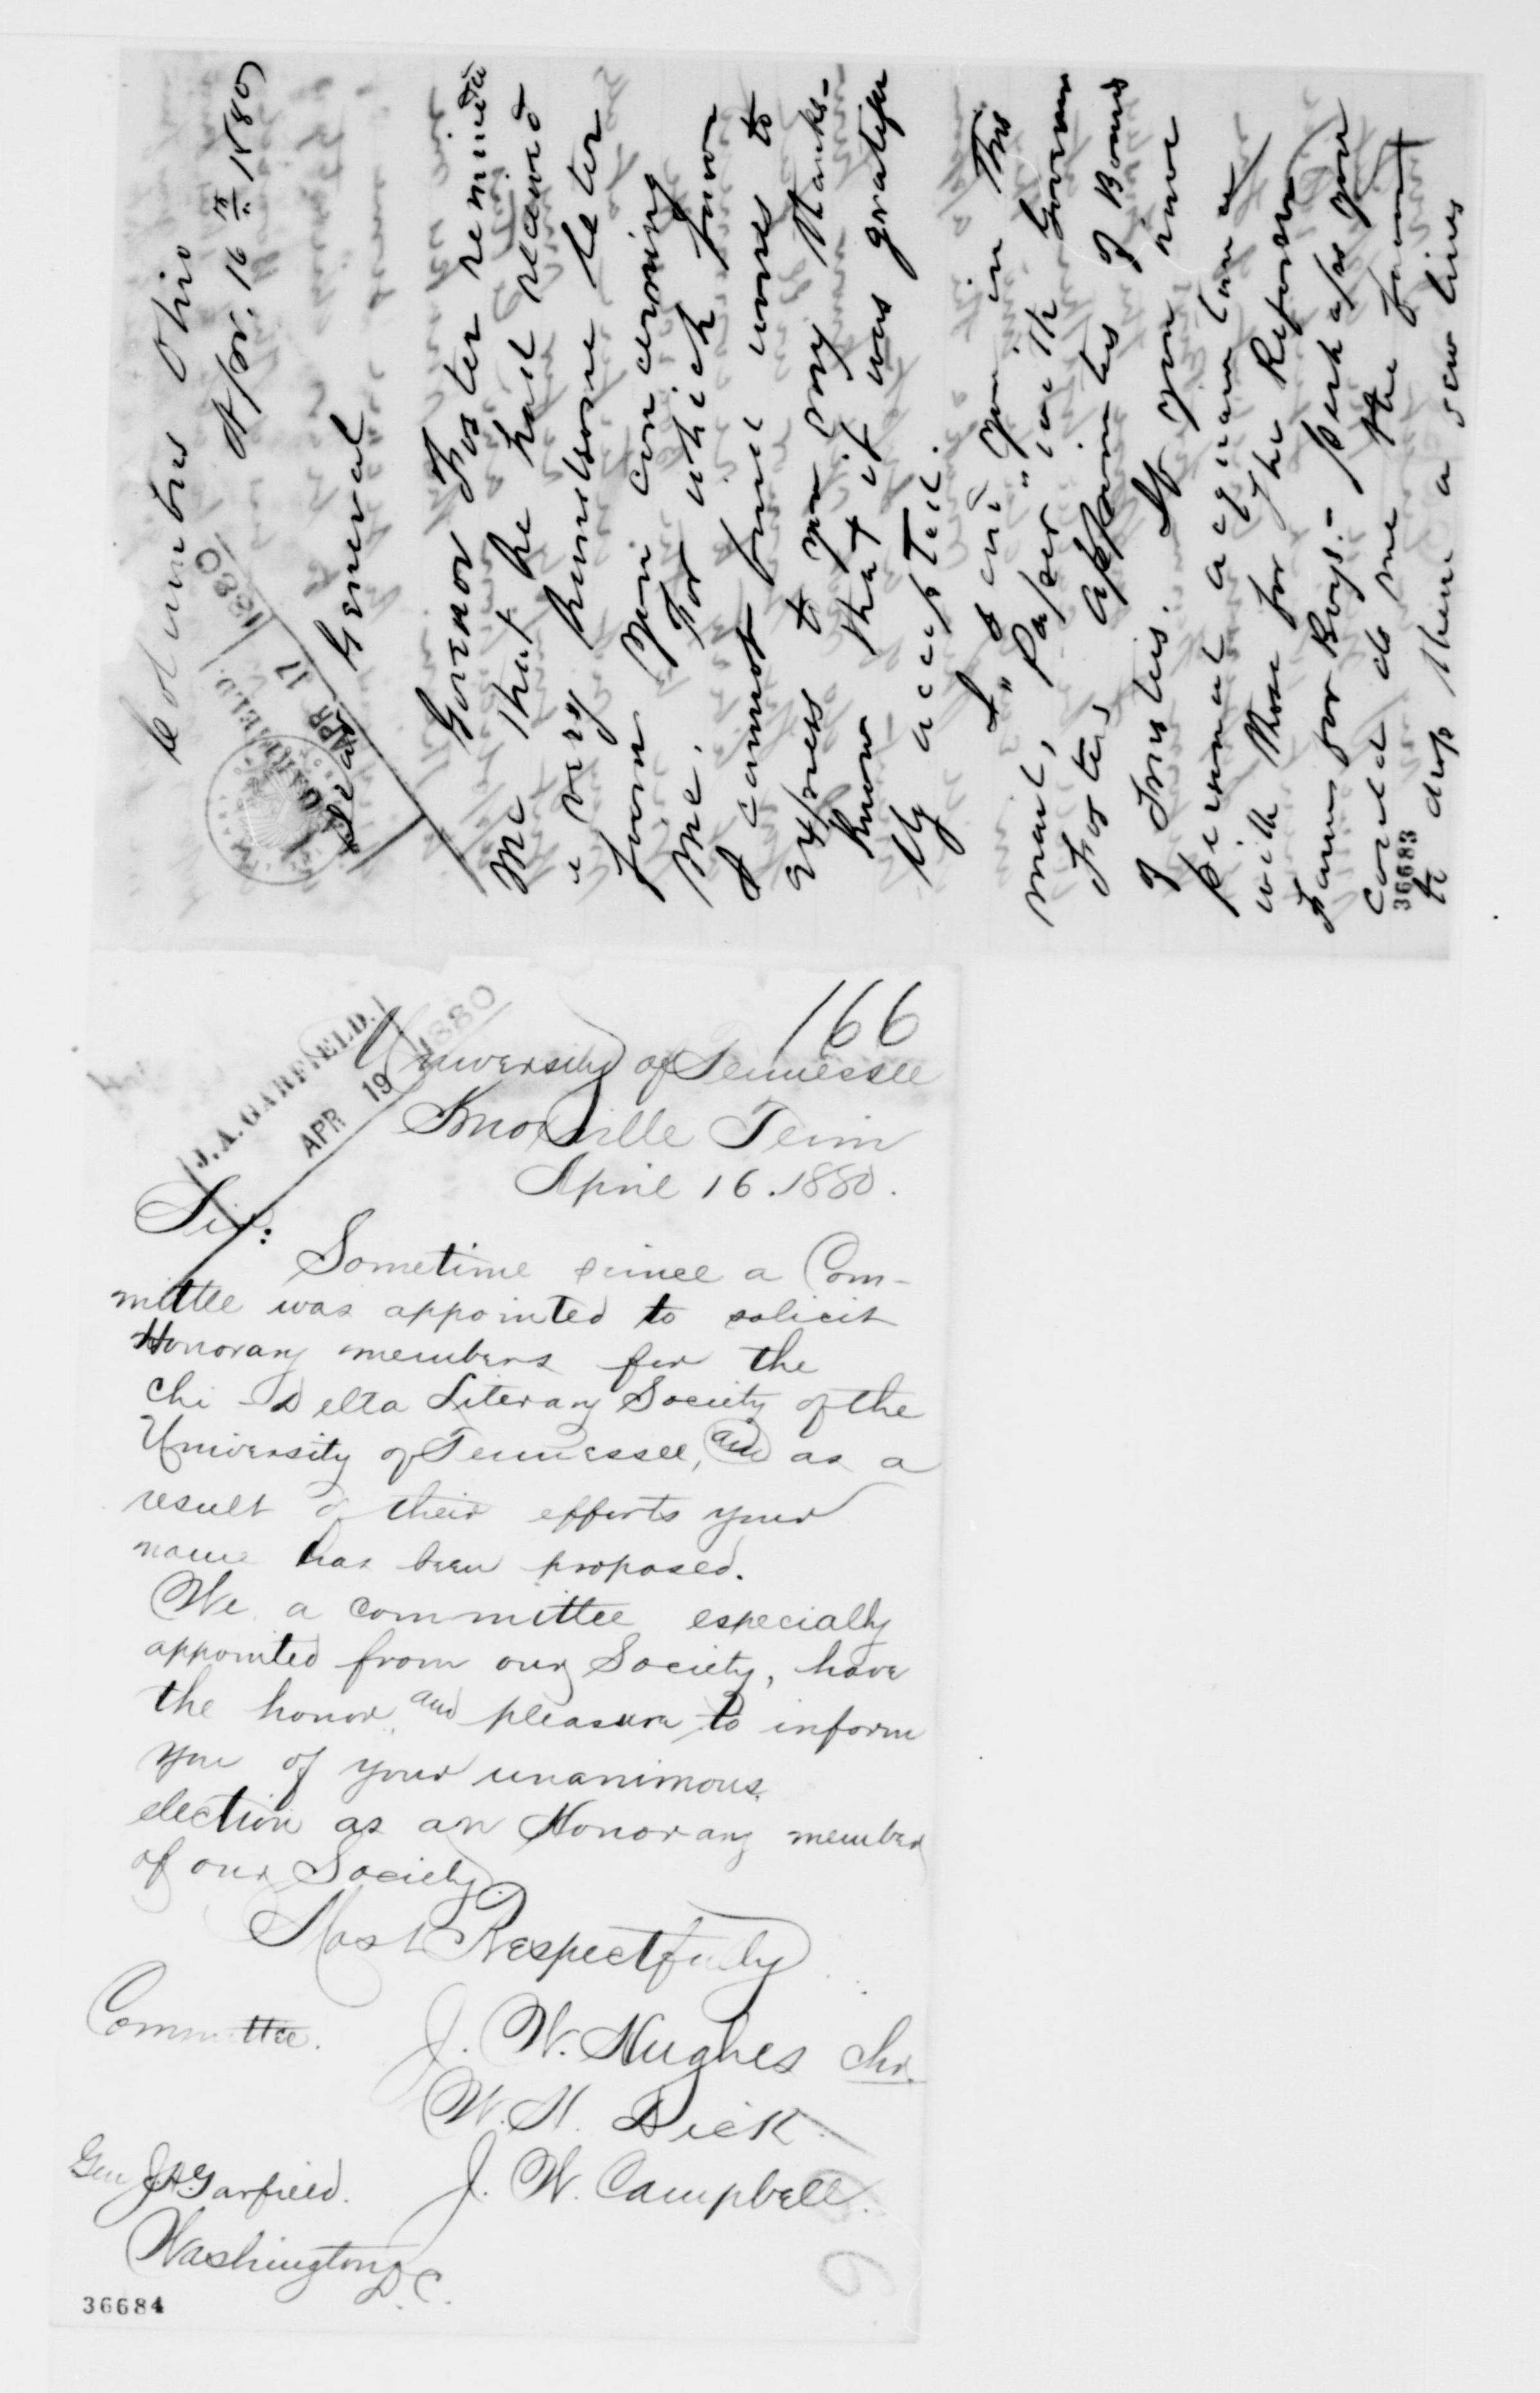 Columbus Ohio
Apr. 16th 1880
J. A. GARFIELD.
APR 17 1880
Dear General
Governor Foster reminded
me that he had received
a very handsome letter
from you concerning
me. For which favor
I cannot find words to
express to you my thanks-
know that it was grateful
ly accepted.
I send you in this
mail, "Paper" with Governor
Foster's appointees of Boards
of Trustees. If you have
personal acquaintance
with those for the Reform
Farm for Boys.- perhaps you
could do me the favor
to drop them a few lines
36683
166
J. A. GARFIELD.
APR 19 1880
University of Tennessee
Knoxville Tenn
April 16. 1880.
Sir:
Sometime since a Com-
mittee was appointed to solicit
Honorary members for the
Chi-Delta Literary Society of the
University of Tennessee, and as a
result of their efforts your
name has been proposed.
We a committee especially
appointed from our Society, have
the honor and pleasure to inform
you of your unanimous
election as an Honorary member
of our Society.
Most Respectfully
Committee. J. W. Hughes Chr.
W. H. Dick
Gen J. A. Garfield. J. W. Campbell.
Washington D.C.
36684